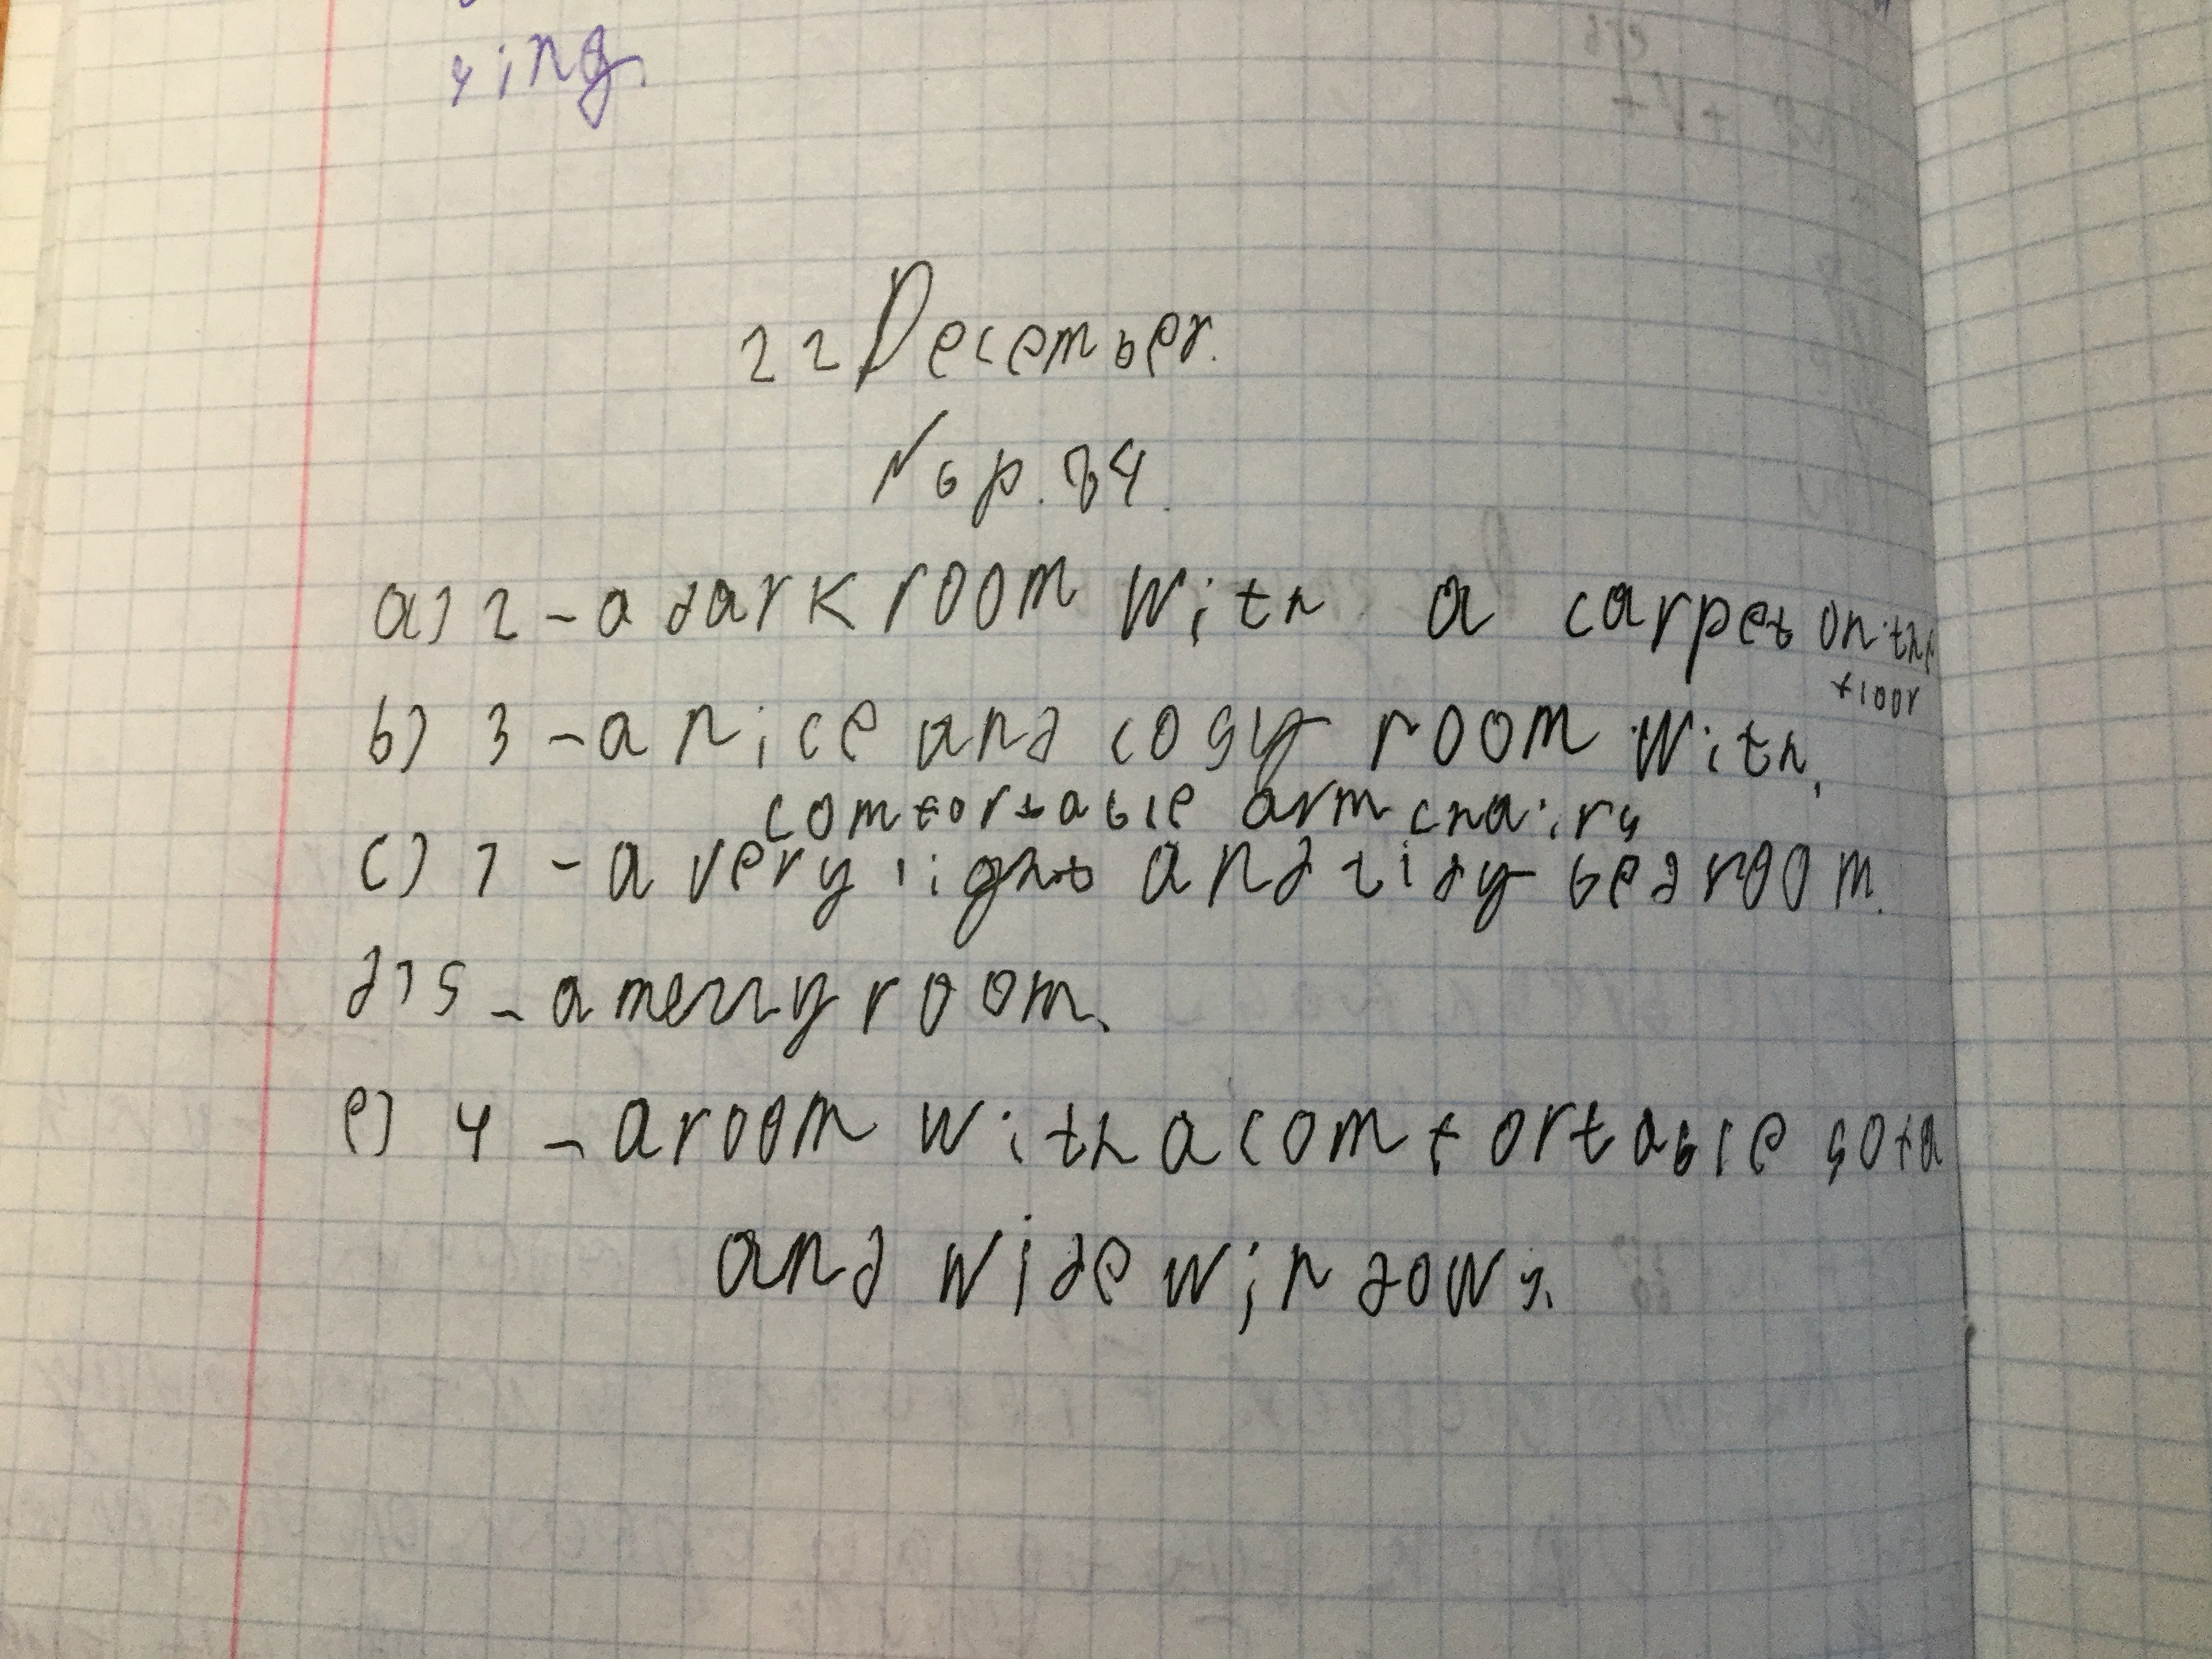 sing.
22 December.
N6 p. 84.
a) 2 - a dark room with a carpet on the
floor
b) 3 - a nice and cosy room with
comfortable armchairs
c) 1 - a very light and tidy bedroom.
d) 5 - a merry room.
e) 4 - a room with a comfortable sofa
and wide windows.